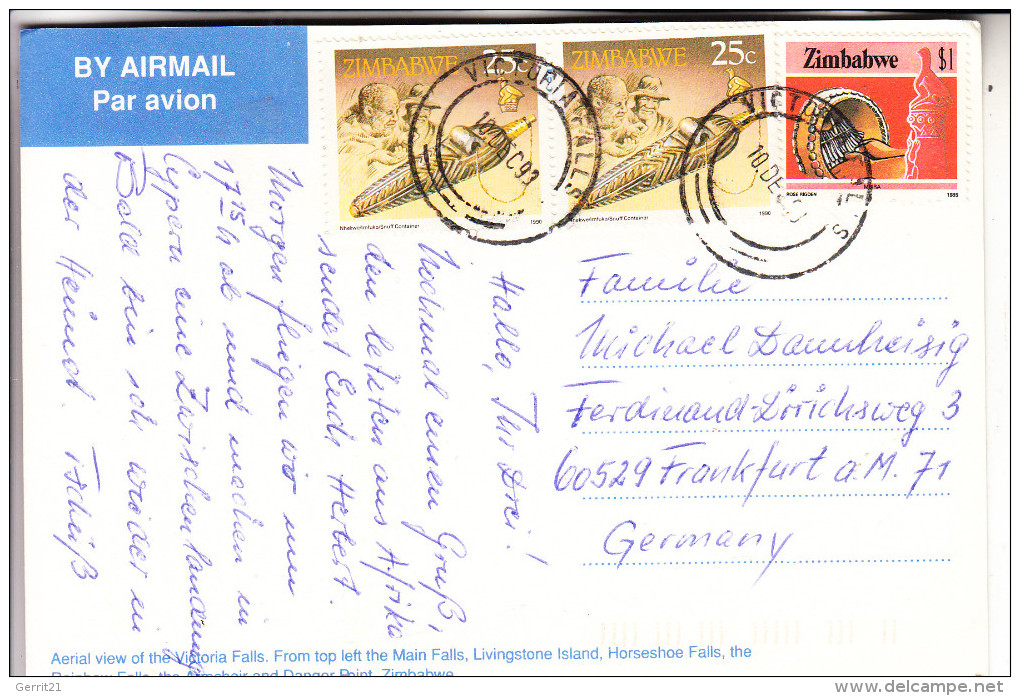 BY AIRMAIL
Par avion
ZIMBABWE 25c
Nhekwe/Imfuko/Snuff Container 1990
ZIMBABWE 25c
Nhekwe/Imfuko/Snuff Container 1990
Zimbabwe $1
ROSE RIGDEN MBIRA 1985
VICTORIA FALLS
10 DEC 93
VICTORIA FALLS
10 DE
Hallo, Ihr Drei!
Nochmal einen Gruß,
den letzten aus Afrika
sendet Euch Herbert.
Morgen fliegen wir um
17 15 h ab und machen in
Cypern eine Zwischenlandung
Bald bin ich wieder in
der Heimat. Tschüß
Familie
Michael Dannheisig
Ferdinand-Dirichsweg 3
60529 Frankfurt a.M. 71
Germany
Aerial view of the Victoria Falls. From top left the Main Falls, Livingstone Island, Horseshoe Falls, the
Rainbow Falls, the Armchair and Danger Point, Zimbabwe
Gerrit21
www.delcampe.net